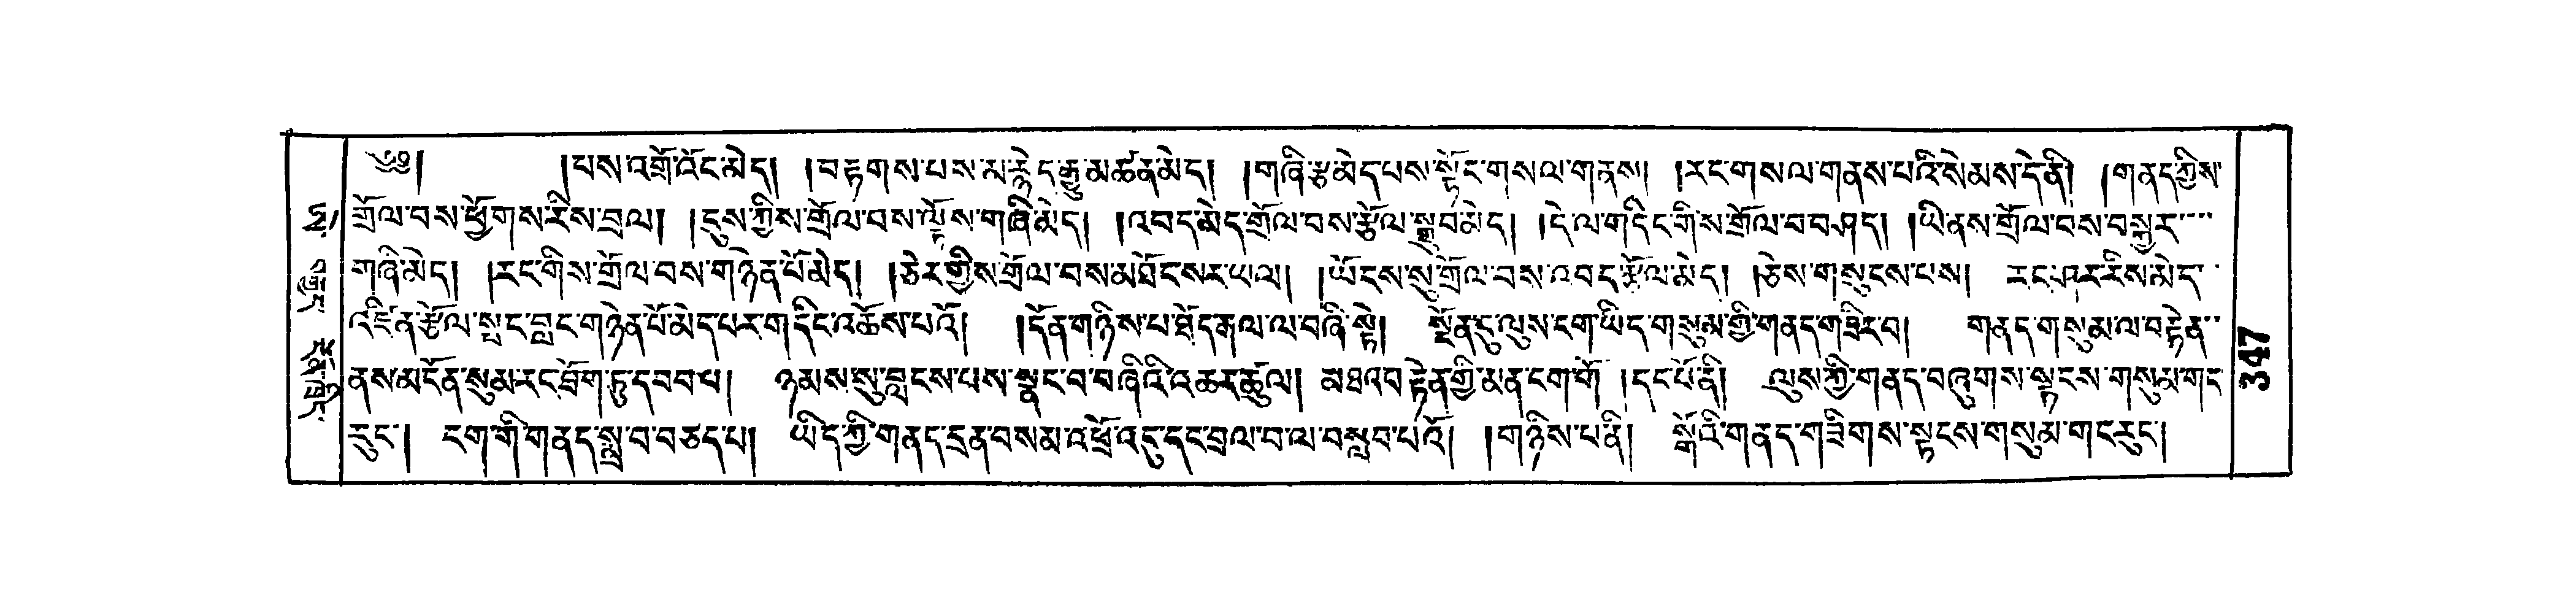 ༄༅། །པས་འགྲོ་འོང་མེད། །བརྟགས་པས་མ་རྙེད་རྒྱུ་མཚན་མེད། །གཞི་རྩ་མེད་པས་སྟོང་གསལ་གནས། །རང་གསལ་གནས་པའི་སེམས་དེ་ནི། །གནད་ཀྱིས་
གྲོལ་བས་ཕྱོགས་རིས་བྲལ། །དུས་ཀྱིས་གྲོལ་བས་ལྟོས་གཞི་མེད། །འབད་མེད་གྲོལ་བས་རྩོལ་སྒྲུབ་མེད། །དེ་ལ་གདིང་གིས་གྲོལ་བ་བཤད། །ཡེ་ནས་གྲོལ་བས་བསྐྱར་
གཞི་མེད། །རང་གིས་གྲོལ་བས་གཉེན་པོ་མེད། །ཅེར་གྱིས་གྲོལ་བས་མཐོང་སར་ཡལ། །ཡོངས་སུ་གྲོལ་བས་འབད་རྩོལ་མེད། །ཅེས་གསུངས་པས། རང་ཤར་རིས་མེད་
འཛིན་རྩོལ་སྤང་བླང་གཉེན་པོ་མེད་པར་གདིང་འཆོས་པའོ། །དོན་གཉིས་པ་ཐོད་རྒལ་ལ་བཞི་སྟེ། སྔོན་དུ་ལུས་ངག་ཡིད་གསུམ་གྱི་གནད་གཟིར་བ། གནད་གསུམ་ལ་བརྟེན་
ནས་མངོན་སུམ་རང་ཐོག་ཏུ་དབབ་པ། ཉམས་སུ་བླངས་པས་སྣང་བ་བཞིའི་འཆར་ཚུལ། མཐའ་བརྟེན་གྱི་མན་ངག་གོ །དང་པོ་ནི། ལུས་ཀྱི་གནད་བཞུགས་སྟངས་གསུམ་གང་
རུང་། ངག་གི་གནད་སྨྲ་བ་བཅད་པ། ཡིད་ཀྱི་གནད་དྲན་བསམ་འཕྲོ་འདུ་དང་བྲལ་བ་ལ་བསླབ་པའོ། །གཉིས་པ་ནི། སྒོའི་གནད་གཟིགས་སྟངས་གསུམ་གང་རུང་།
743